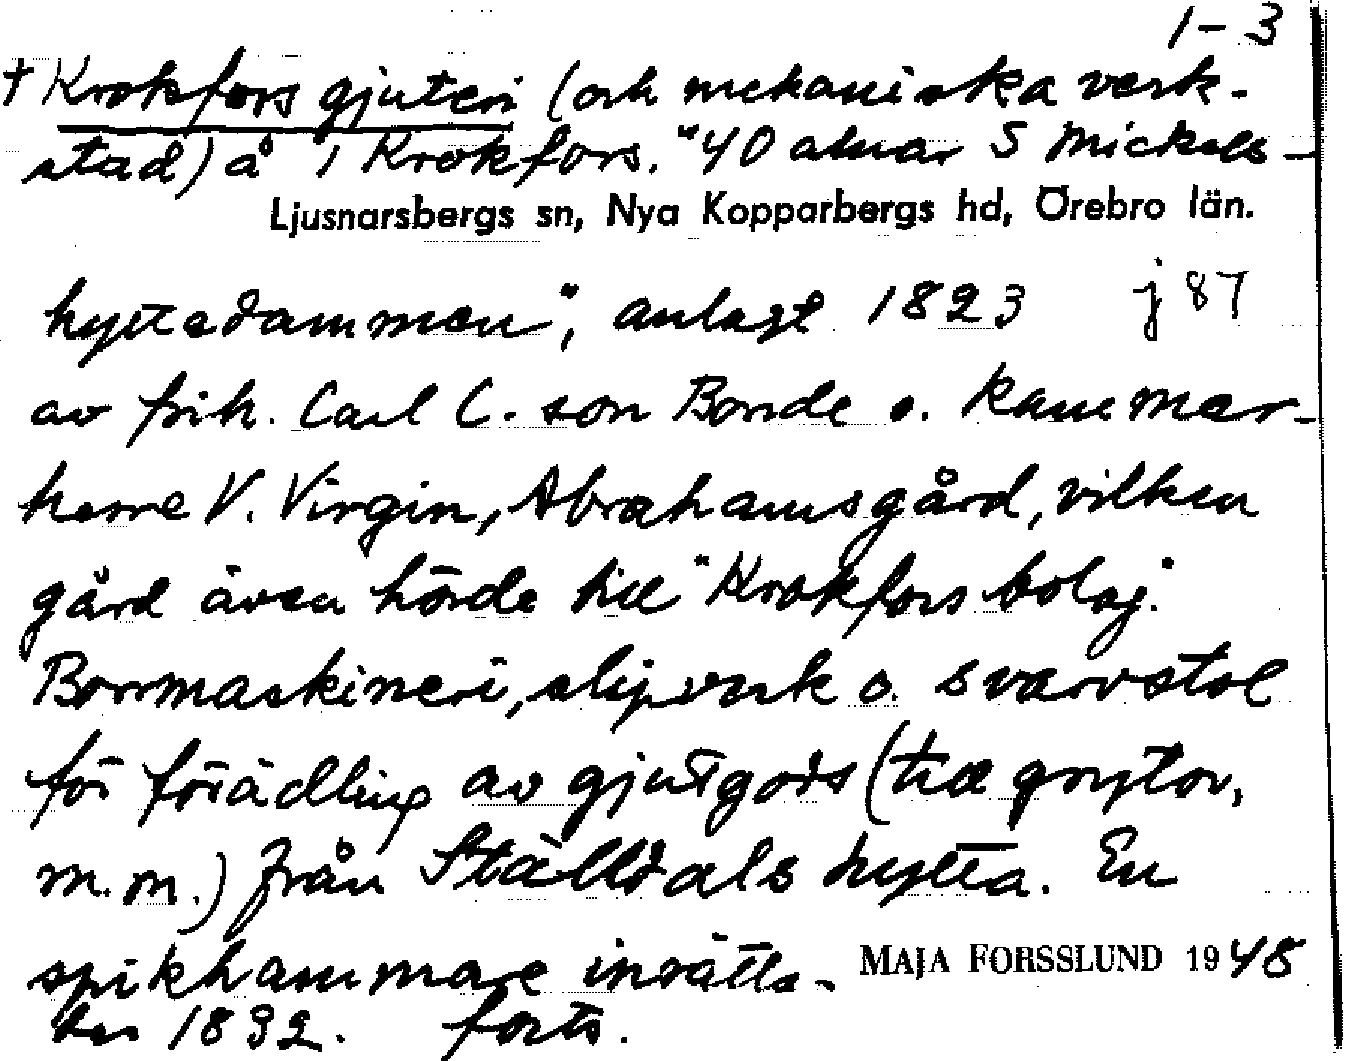 1-3
† Krokfors gjuteri (och mekaniska verk-
stad) å i Krokfors. "40 alnar S Mickels-
Ljusnarsbergs sn, Nya Kopparbergs hd, Örebro län.
hyttedammen", anlagt 1823 j 87
av frih. Carl C. son Bonde o. kammar-
herre V. Virgin, Abrahamsgård, vilken
gård även hörde till "Krokfors bolag."
Borrmaskineri, slipverk o. svarvstol
för förädling av gjutgods (till grytor,
m.m.) från Ställdals hytta. En
spikhammare insätts- MAJA FORSSLUND 1948
tes 1832. forts.